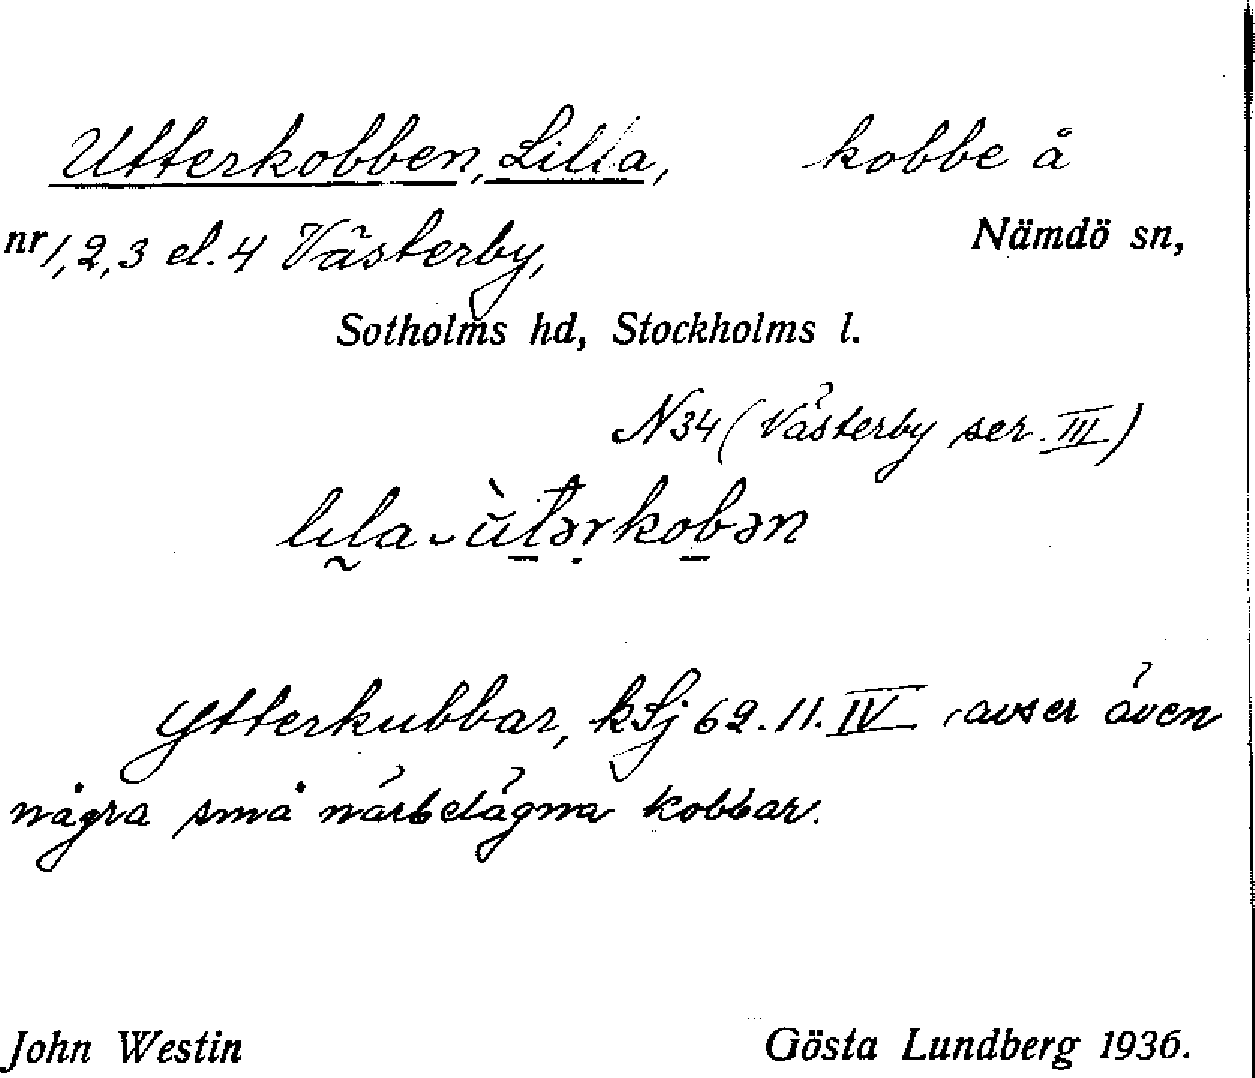 Utterkobben, Lilla, kobbe å
nr 1, 2, 3 el. 4 Västerby, Nämdö sn,
Sotholms hd, Stockholms l.
N34 (Västerby ser. III)
lıla-ùtərkobən
Ytterkubbar, kSj 62.11.IV, avser även
några små närbelägna kobbar.
John Westin Gösta Lundberg 1936.